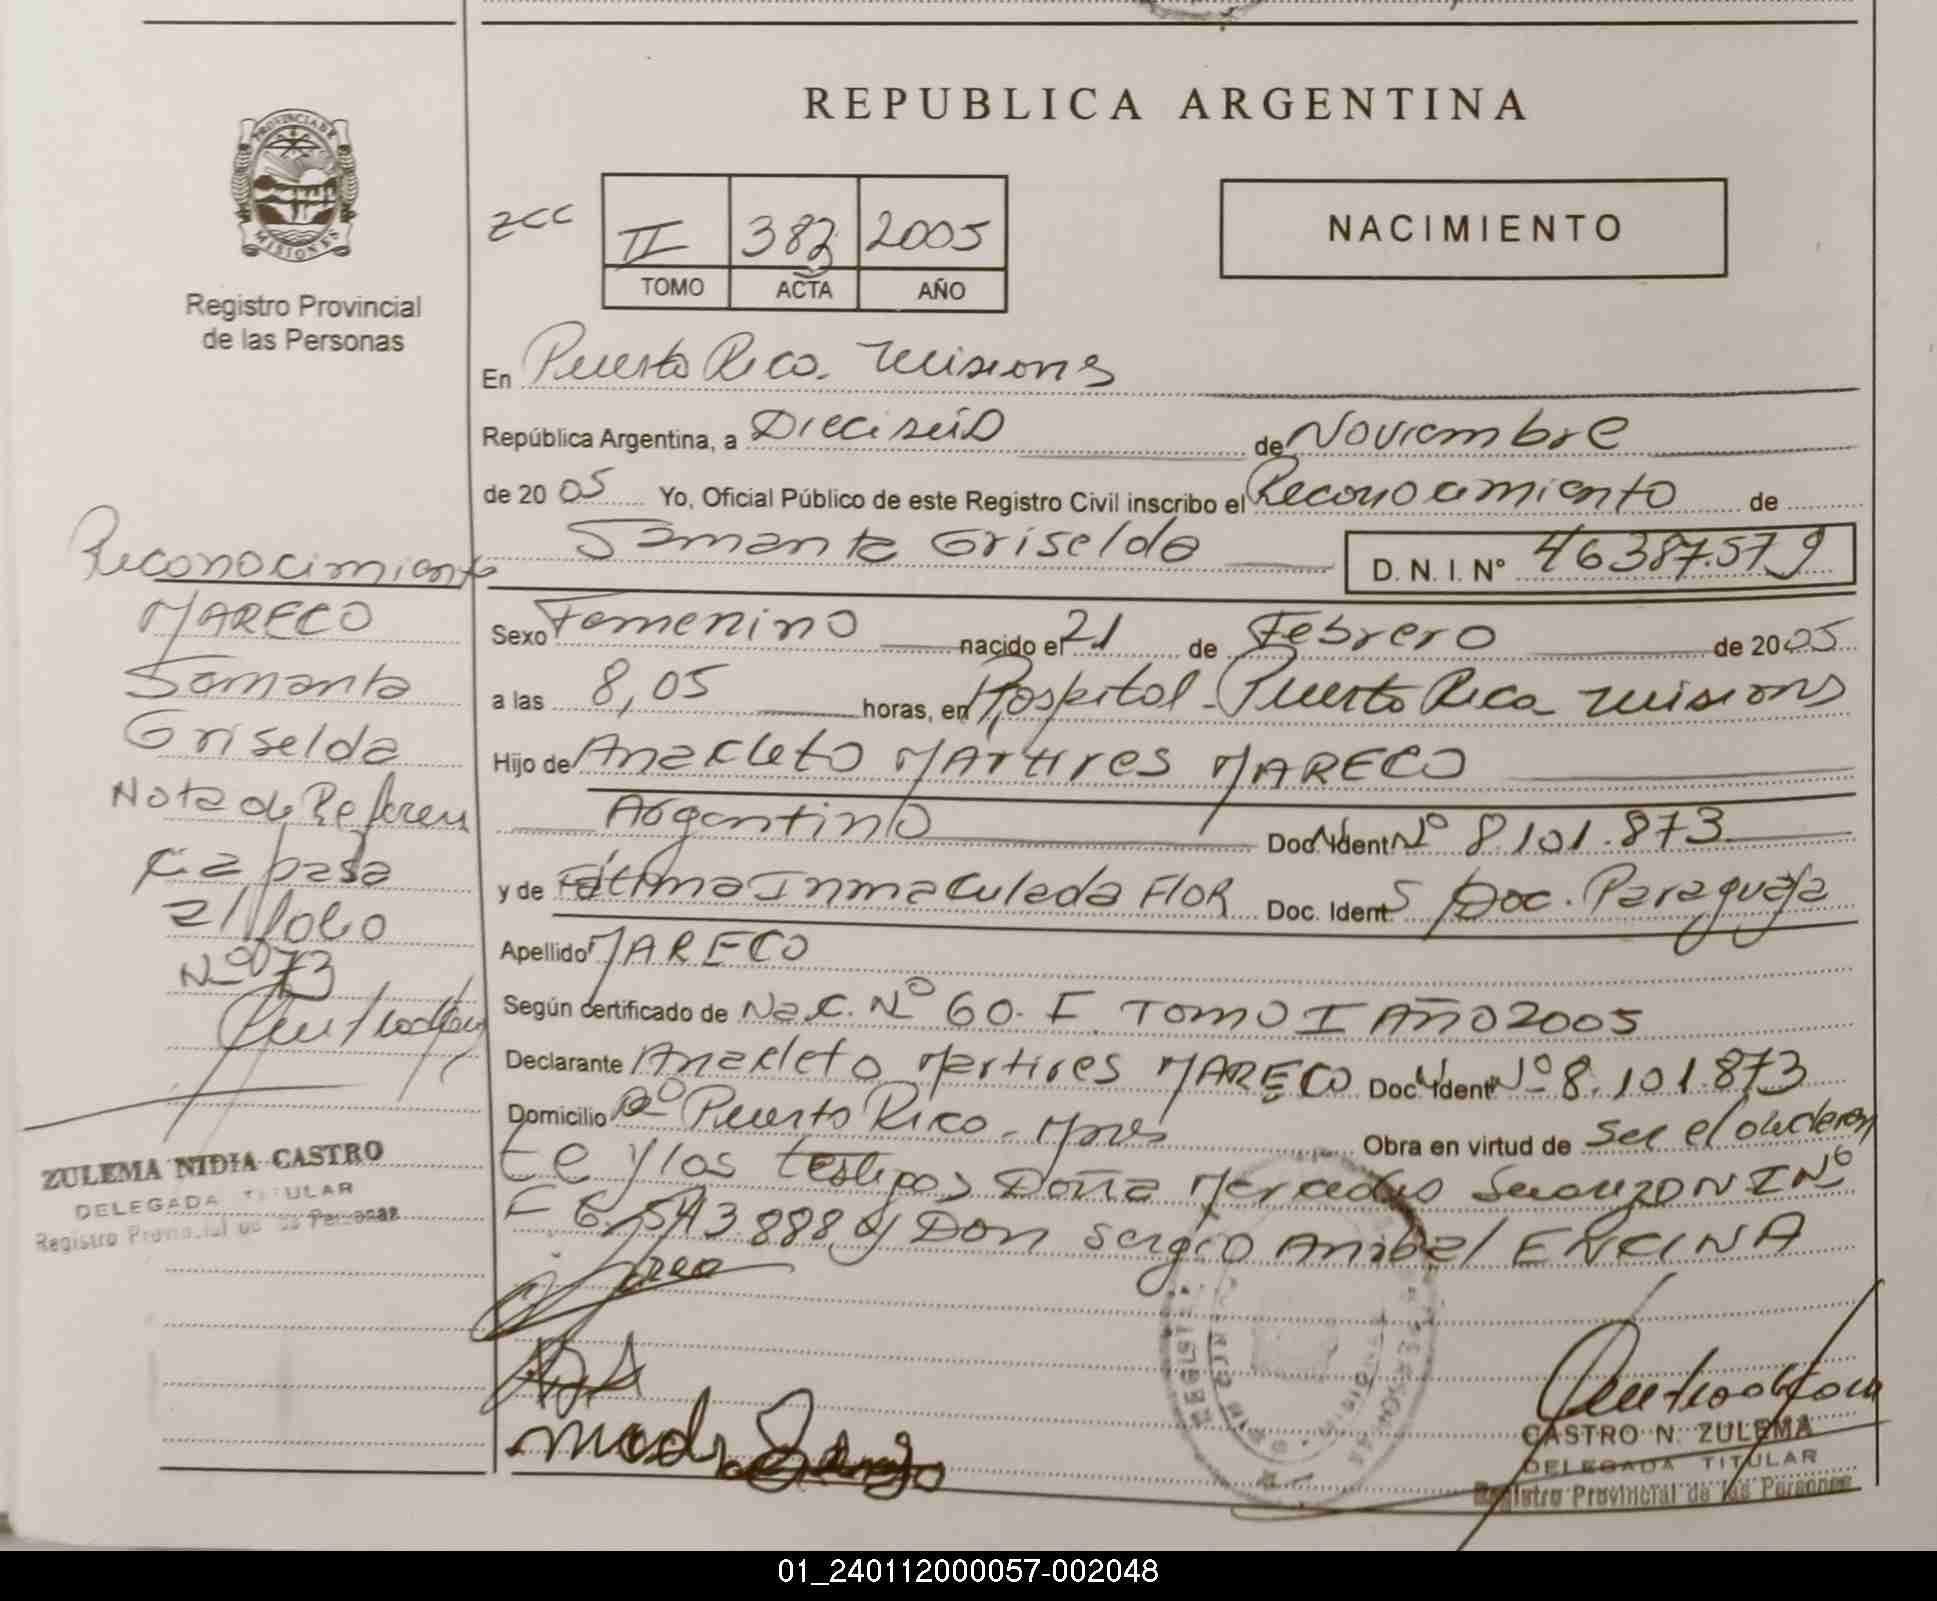 REPUBLICA ARGENTINA
PROVINCIA DE
MISIONES
Registro Provincial
de las Personas
zcc II 382 2005
TOMO ACTA AÑO
NACIMIENTO
En Puerto Rico. Misiones
República Argentina, a Dieciseis de Noviembre
de 20 05 Yo, Oficial Público de este Registro Civil inscribo el Reconocimiento de
Samanta Griselda D. N. I. Nº 46387.579
Sexo Femenino nacido el 21 de Febrero de 2005
a las 8,05 horas, en Hospital - Puerto Rico Misiones
Hijo de Anacleto Martires MARECO
Argentino Doc. Ident Nº 8.101.873
y de Fátima Inmaculada FLOR Doc. Ident S/Doc. Paraguaya
Apellido MARECO
Según certificado de Nac. Nº 60. F. TOMO I AÑO 2005
Declarante Anacleto Martires MARECO Doc. Ident Nº 8.101.873
Domicilio Puerto Rico - Mnes Obra en virtud de Ser el declaran
te y los testigos Doña Mercedes DNI Nº
F 6.543.888 y Don Sergio Anibal ENCINA
Reconocimiento
MARECO
Samanta
Griselda
Nota de Referen
cia pasa
al folio
Nº 073
ZULEMA NIDIA CASTRO
DELEGADA TITULAR
Registro Provincial de las Personas
CASTRO N. ZULEMA
DELEGADA TITULAR
Registro Provincial de las Personas
01_240112000057-002048